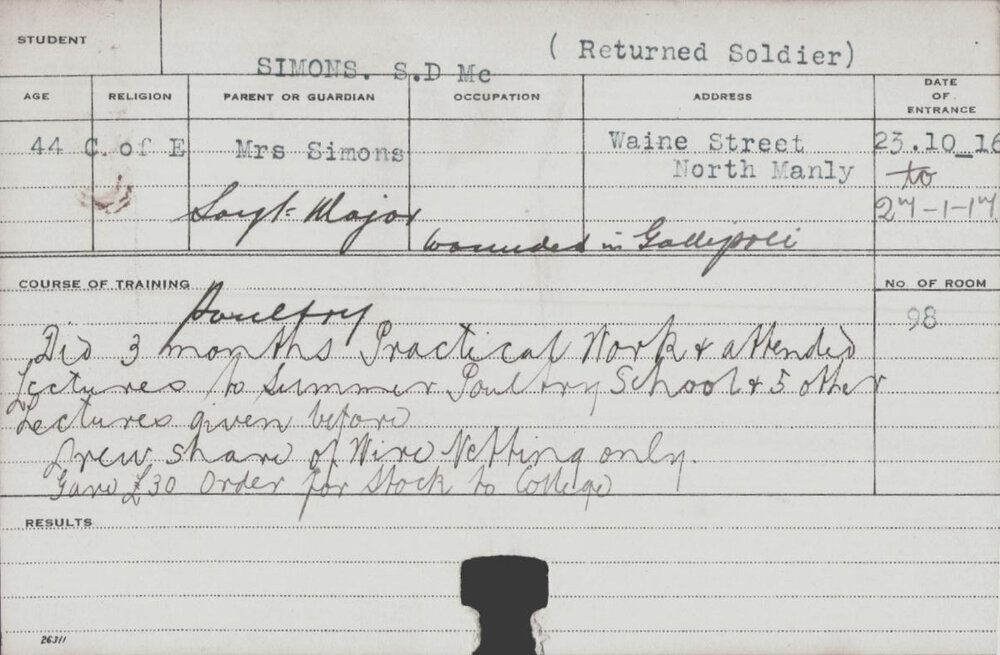 STUDENT
SIMONS. S.D Mc ( Returned Soldier)
AGE RELIGION PARENT OR GUARDIAN OCCUPATION ADDRESS DATE OF ENTRANCE
44 C. of E Mrs Simons Waine Street 23.10_16
North Manly to
Sargt Major 27-1-17
wounded in Gallipoli
COURSE OF TRAINING No. OF ROOM
Poultry 98
Did 3 months Practical Work & attended
Lectures to Summer Poultry School & 5 other
Lectures given before
Drew share of Wire Netting only.
Gave £30 Order for Stock to College
RESULTS
26311